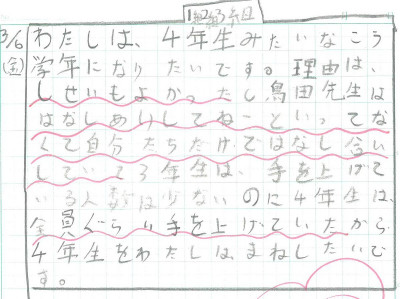 1組23番
3/6
(金)
わたしは、4年生みたいなこう
学年になりたいです。理由は、
しせいもよかったし鳥田先生は
はなしあいしてねーといってな
くて自分たちだけではなし合い
していて3年生は、手を上げて
いる人数は少ないのに4年生は、
全員ぐらい手を上げていたから
4年生をわたしはまねしたいで
す。